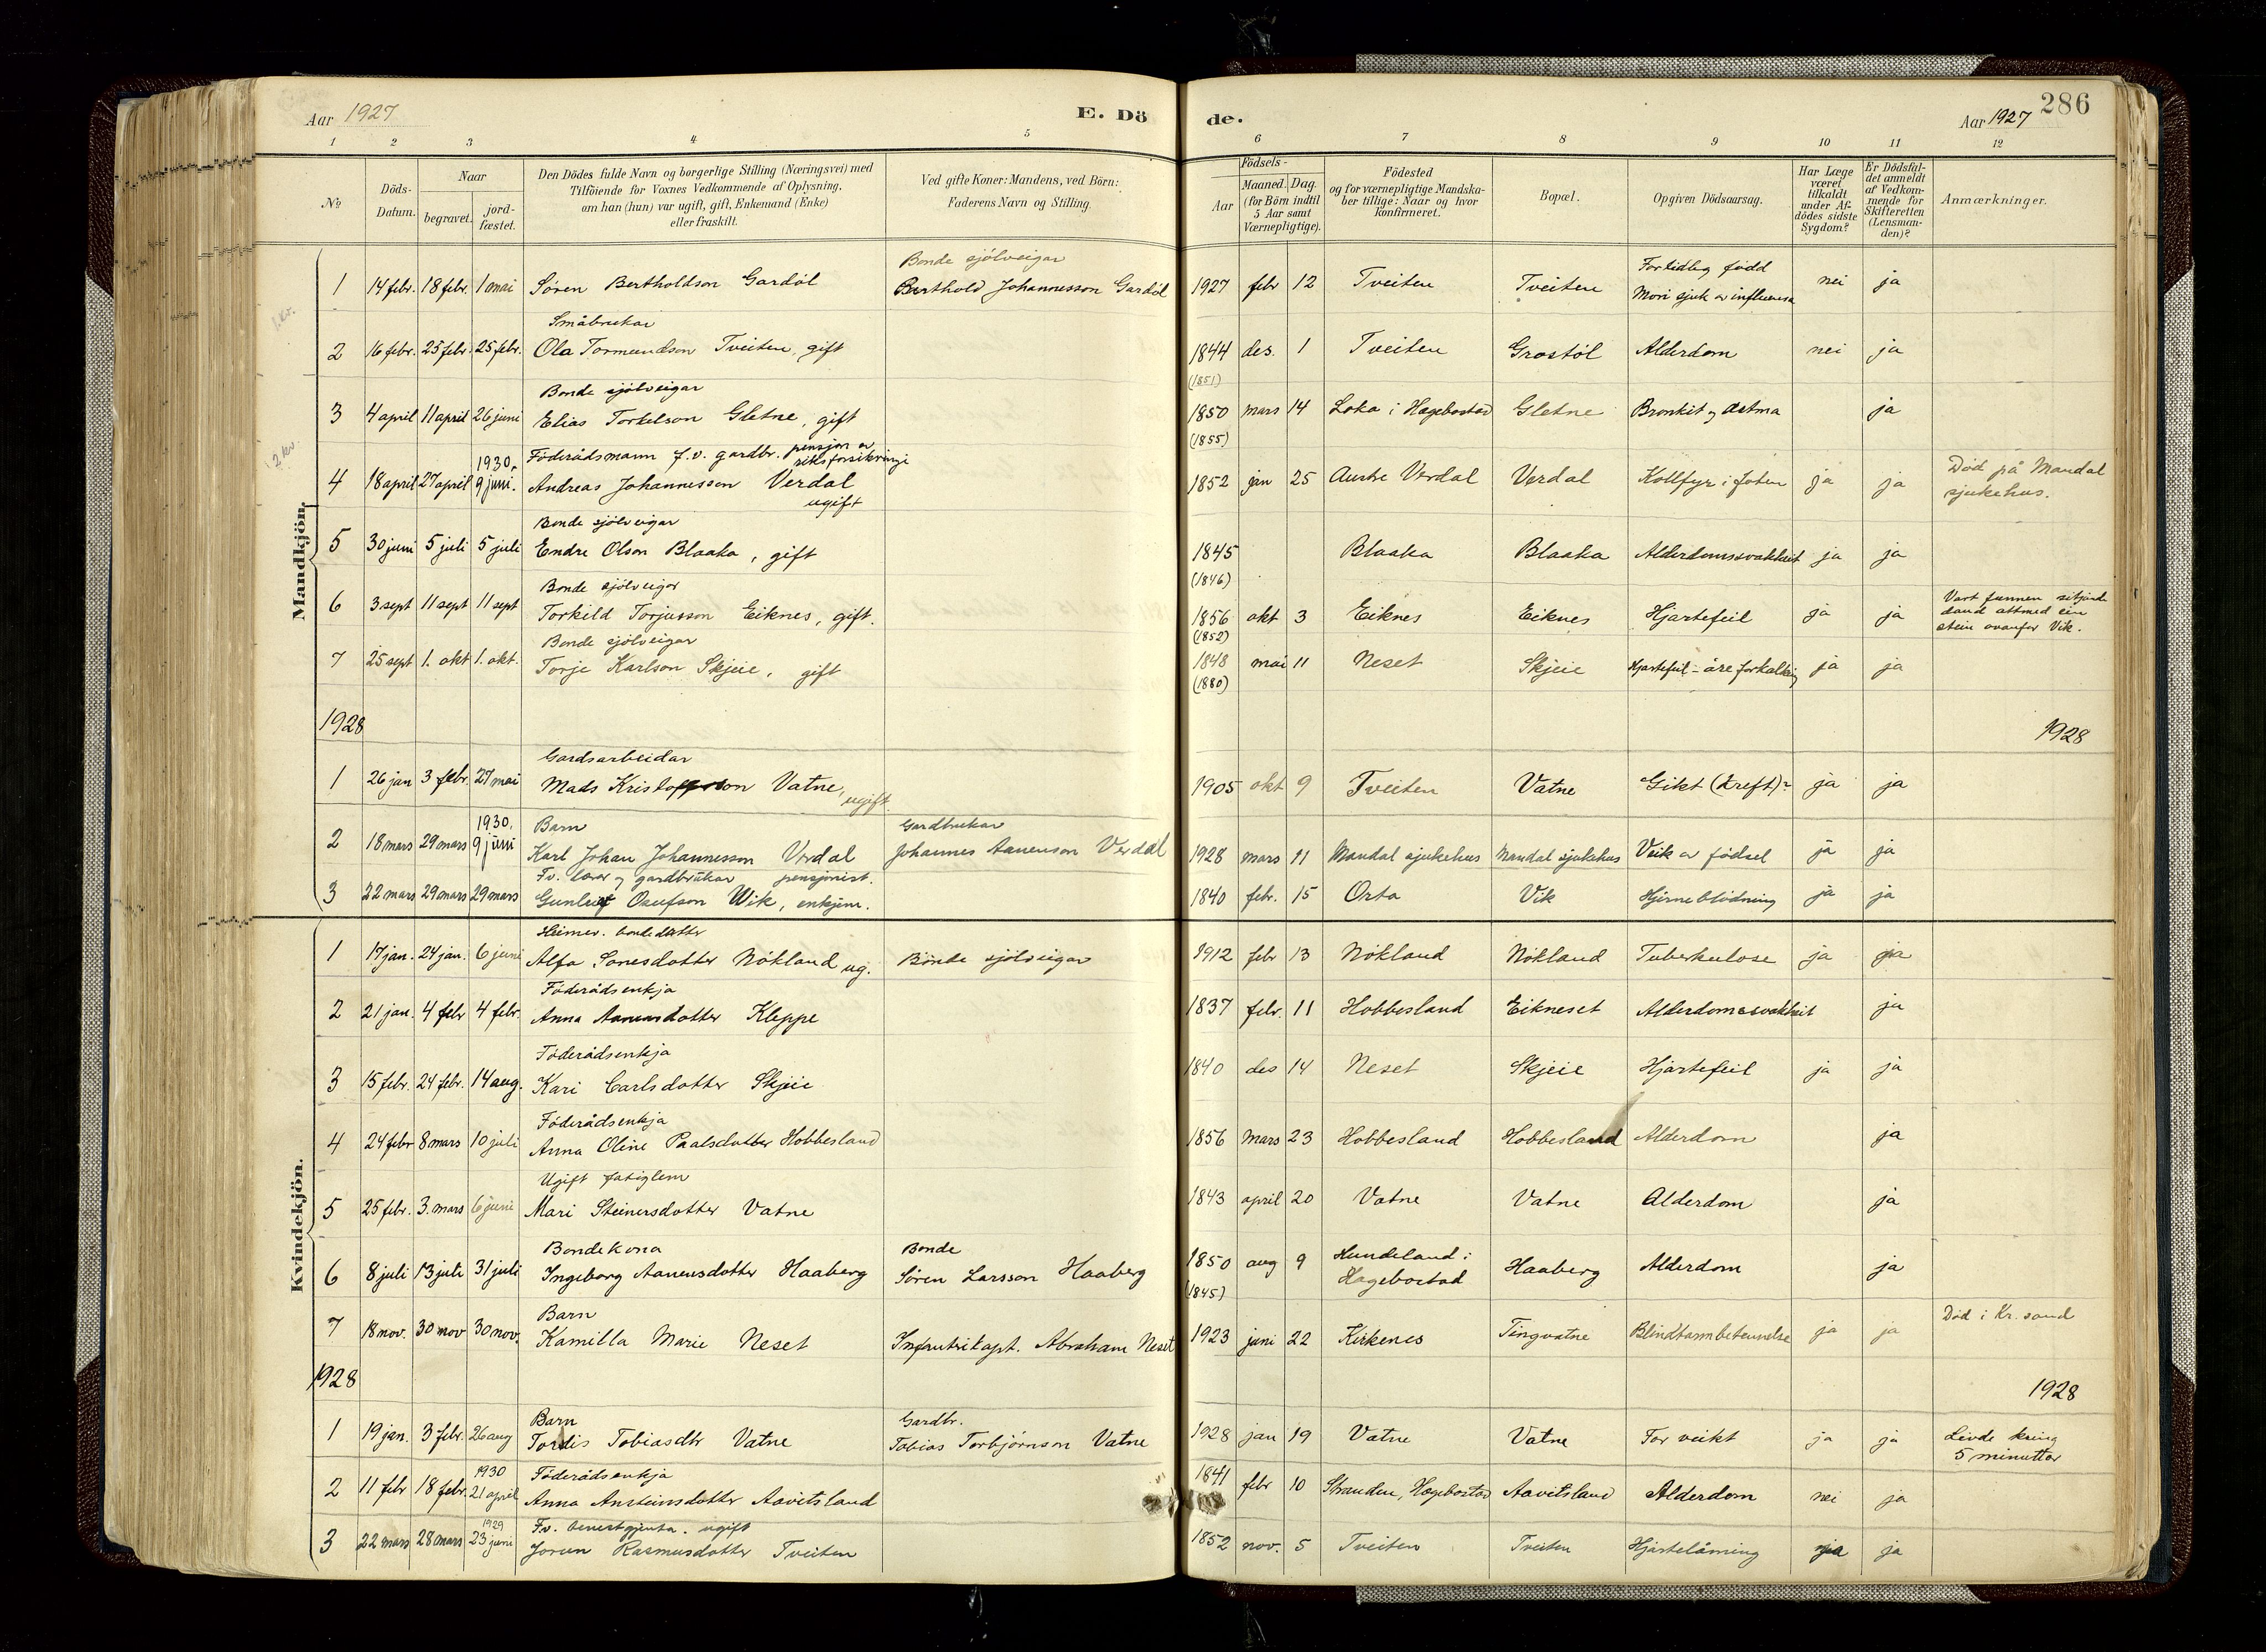 Aar 1927 E. Dö de. Aar 1927 286
1 2 3 4 5 6 7 8 9 10 11 12
No. Döds-Datum. Naar begravet. jordfæstet. Den Dödes fulde Navn og borgerlige Stilling (Næringsvei) med Tilföiende for Voxnes Vedkommende af Oplysning, om han (hun) var ugift, gift, Enkemand (Enke) eller fraskilt. Ved gifte Koner: Mandens, ved Börn: Faderens Navn og Stilling. Födsels- Aar Maaned. Dag. (for Börn indtil 5 Aar samt Værnepligtige). Födested og for værnepligtige Mandskaber tillige: Naar og hvor konfirmeret. Bopæl. Opgiven Dödsaarsag. Har Læge været tilkaldt under Afdödes sidste Sygdom? Er Dödsfaldet anmeldt af Vedkommende for Skifteretten (Lensmanden)? Anmærkninger.
Mandkjön.
Bonde sjölveigar Fortidleg född
1 14 febr. 18 febr. 1 mai Sören Bertholdson Gardöl Berthold Johannesson Gardöl 1927 febr 12 Tveiten Tveiten Mori sjuk av influensa nei ja
Småbrukar
2 16 febr. 25 febr. 25 febr. Ola Tormundson Tveiten, gift 1844 des. 1 Tveiten Grostöl Alderdom nei ja
(1851)
Bonde sjölveigar
3 4 april 11 april 26 juni Elias Torkelson Gletne, gift 1850 mars 14 Loka i Hægebostad Gletne Bronkit og astma ja
(1855)
Föderådsmann f.v. gardbr. pensjon av riksforsikringi
4 18 april 27 april 1930, 9 juni. Andreas Johannesson Verdal ugift 1852 jan 25 Austre Verdal Verdal Kollfyr i foten ja ja Död på Mandal sjukehus.
Bonde sjölveigar
5 30 juni 5 juli 5 juli Endre Olson Blaaka, gift 1845 Blaaka Blaaka Alderdomssvakheit ja ja
(1846)
Bonde sjölveigar
6 3 sept 11 sept 11 sept Torkild Torjusson Eiknes, gift. 1856 okt 3 Eiknes Eiknes Hjartefeil ja ja Vart funnen sitjande daud attmed ein stein ovanfor Vik.
(1852)
Bonde sjölveigar
7 25 sept 1. okt 1. okt. Torje Karlson Skjeie, gift 1848 mai 11 Neset Skjeie Hjartefeil - åreforkalking ja ja
(1880)
1928 1928
Gardsarbeidar
1 26 jan 3 febr. 27 mai Mads Kristoffersson Vatne, ugift 1905 okt 9 Tveiten Vatne Gikt (Kreft)? ja ja
Barn Gardbrukar
2 18 mars 29 mars 1930, 9 juni Karl Johan Johannesson Verdal Johannes Aanenson Verdal 1928 mars 11 Mandal sjukehus Mandal sjukehus Veik av födsel ja ja
Fv. lærar og gardbrukar pensjonist.
3 22 mars 29 mars 29 mars Gunleif Osufson Wik, enkjem. 1840 febr. 15 Orta Vik Hjerneblödning ja ja
Kvindekjön.
Heimev. bondedotter
1 17 jan. 24 jan. 6 juni Alfa Sonesdotter Nökland ug. Bonde sjölveigar 1912 febr 13 Nökland Nökland Tuberkulose ja ja
Föderådsenkja
2 21 jan. 4 febr 4 febr. Anna Aanensdotter Kleppe 1837 febr. 11 Hobbesland Eikneset Alderdomssvakheit ja
Föderådsenkja
3 15 febr. 24 febr. 14 aug. Kari Carlsdotter Skjeie 1840 des 14 Neset Skjeie Hjartefeil ja ja
Föderådsenkja
4 24 febr 8 mars 10 juli Anna Oline Paalsdotter Hobbesland 1856 mars 23 Hobbesland Hobbesland Alderdom ja
Ugift fatiglem
5 25 febr. 3. mars 6 juni Mari Steinersdotter Vatne 1843 april 20 Vatne Vatne Alderdom ja
Bondekona Bonde
6 8 juli 13 juli 31 juli Ingeborg Aanensdotter Haaberg Sören Larsson Haaberg 1850 aug 9 Hundeland i Hægebostad Haaberg Alderdom ja
(1845)
Barn
7 18 nov. 30 nov 30 nov. Kamilla Marie Neset Infanterikapt. Abraham Neset 1923 juni 22 Kirkenes Tingvatne Blindtarmbetennelse ja ja Död i Kr. sand
1928 1928
Barn Gardbr.
1 19 jan. 3 febr. 26 aug Tordis Tobiasdtr Vatne Tobias Torbjörnson Vatne 1928 jan 19 Vatne Vatne For veikt ja ja Livde kring 5 minuttar
Föderådsenkja
2 11 febr 18 febr. 1930 21 april Anna Ansteinsdotter Aavitsland 1841 febr 10 Stranden, Hægebostad Aavitsland Alderdom nei ja
Fv. tenestgjenta. ugift
3 22 mars 28 mars 1929 23 juni Jorun Rasmusdotter Tveiten 1852 nov. 5 Tveiten Tveiten Hjartelåming ja ja